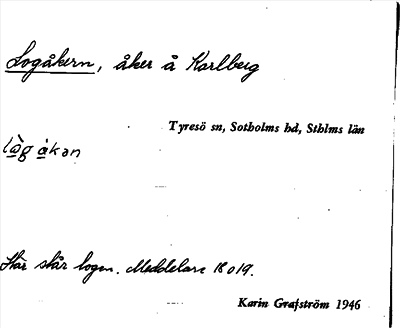 Logåkern, åker å Karlberg
Tyresö sn, Sotholms hd, Sthlms län
lò̱g å̱kən
Här står logen. Meddelare 18 o 19.
Karin Grafström 1946